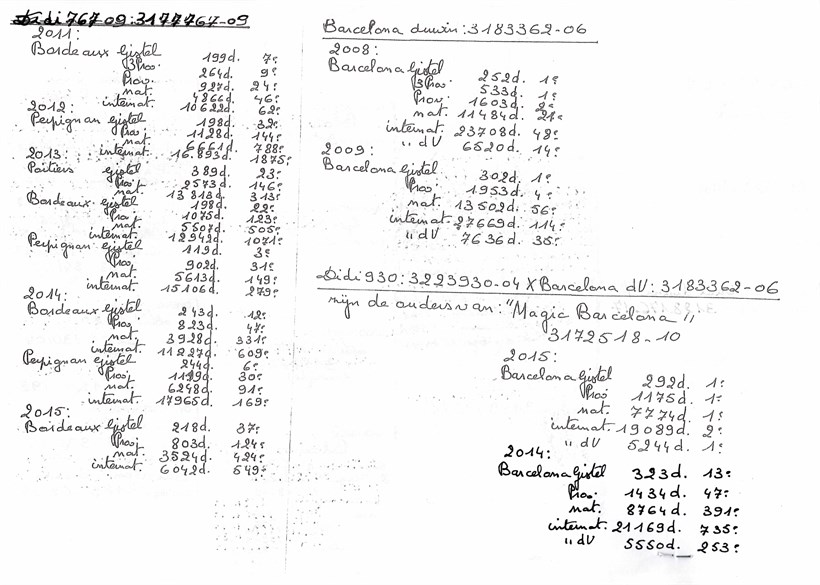 Didi 767 09: 3177767-09
2011:
Bordeaux Gistel 199d. 7e
B Prov. 264d. 9e
Prov. 927d. 24e
nat. 4866d. 46e
internat. 10622d. 62e
2012:
Perpignan Gistel 198d. 32e
Prov. 1128d. 144e
nat. 6661d. 788e
internat. 16.893d. 1875e
2013:
Poitiers Gistel 389d. 23e
Prov. 2573d. 146e
nat. 13813d. 313e
Bordeaux Gistel 198d. 22e
Prov. 1075d. 123e
nat. 5507d. 505e
internat. 12942d. 1071e
Perpignan Gistel 119d. 3e
Prov. 902d. 31e
nat. 5613d. 149e
internat. 15106d. 279e
2014:
Bordeaux Gistel 243d. 12e
Prov. 823d. 47e
nat. 3928d. 331e
internat. 11227d. 609e
Perpignan Gistel 244d. 6e
Prov. 1199d. 30e
nat. 6248d. 91e
internat. 17965d. 169e
2015:
Bordeaux Gistel 218d. 37e
Prov. 803d. 124e
nat. 3524d. 424e
internat. 6042d. 549e
Barcelona duivin: 3183362-06
2008:
Barcelona Gistel 252d. 1e
B Prov. 533d. 1e
Prov. 1603d. 2e
nat. 11484d. 21e
internat. 23708d. 48e
" dV 6520d. 14e
2009:
Barcelona Gistel 302d. 1e
Prov. 1953d. 4e
nat. 13502d. 56e
internat. 27669d. 114e
" dV 7636d. 35e
Didi 930: 3223930-04 X Barcelona dV: 3183362-06
zijn de ouders van: "Magic Barcelona"
3172518-10
2015:
Barcelona Gistel 292d. 1e
Prov. 1175d. 1e
nat. 7774d. 1e
internat. 19089d. 2e
" dV 5244d. 1e
2014:
Barcelona Gistel 323d. 13e
Prov. 1434d. 47e
nat. 8764d. 391e
internat. 21169d. 735e
" dV 5550d. 253e